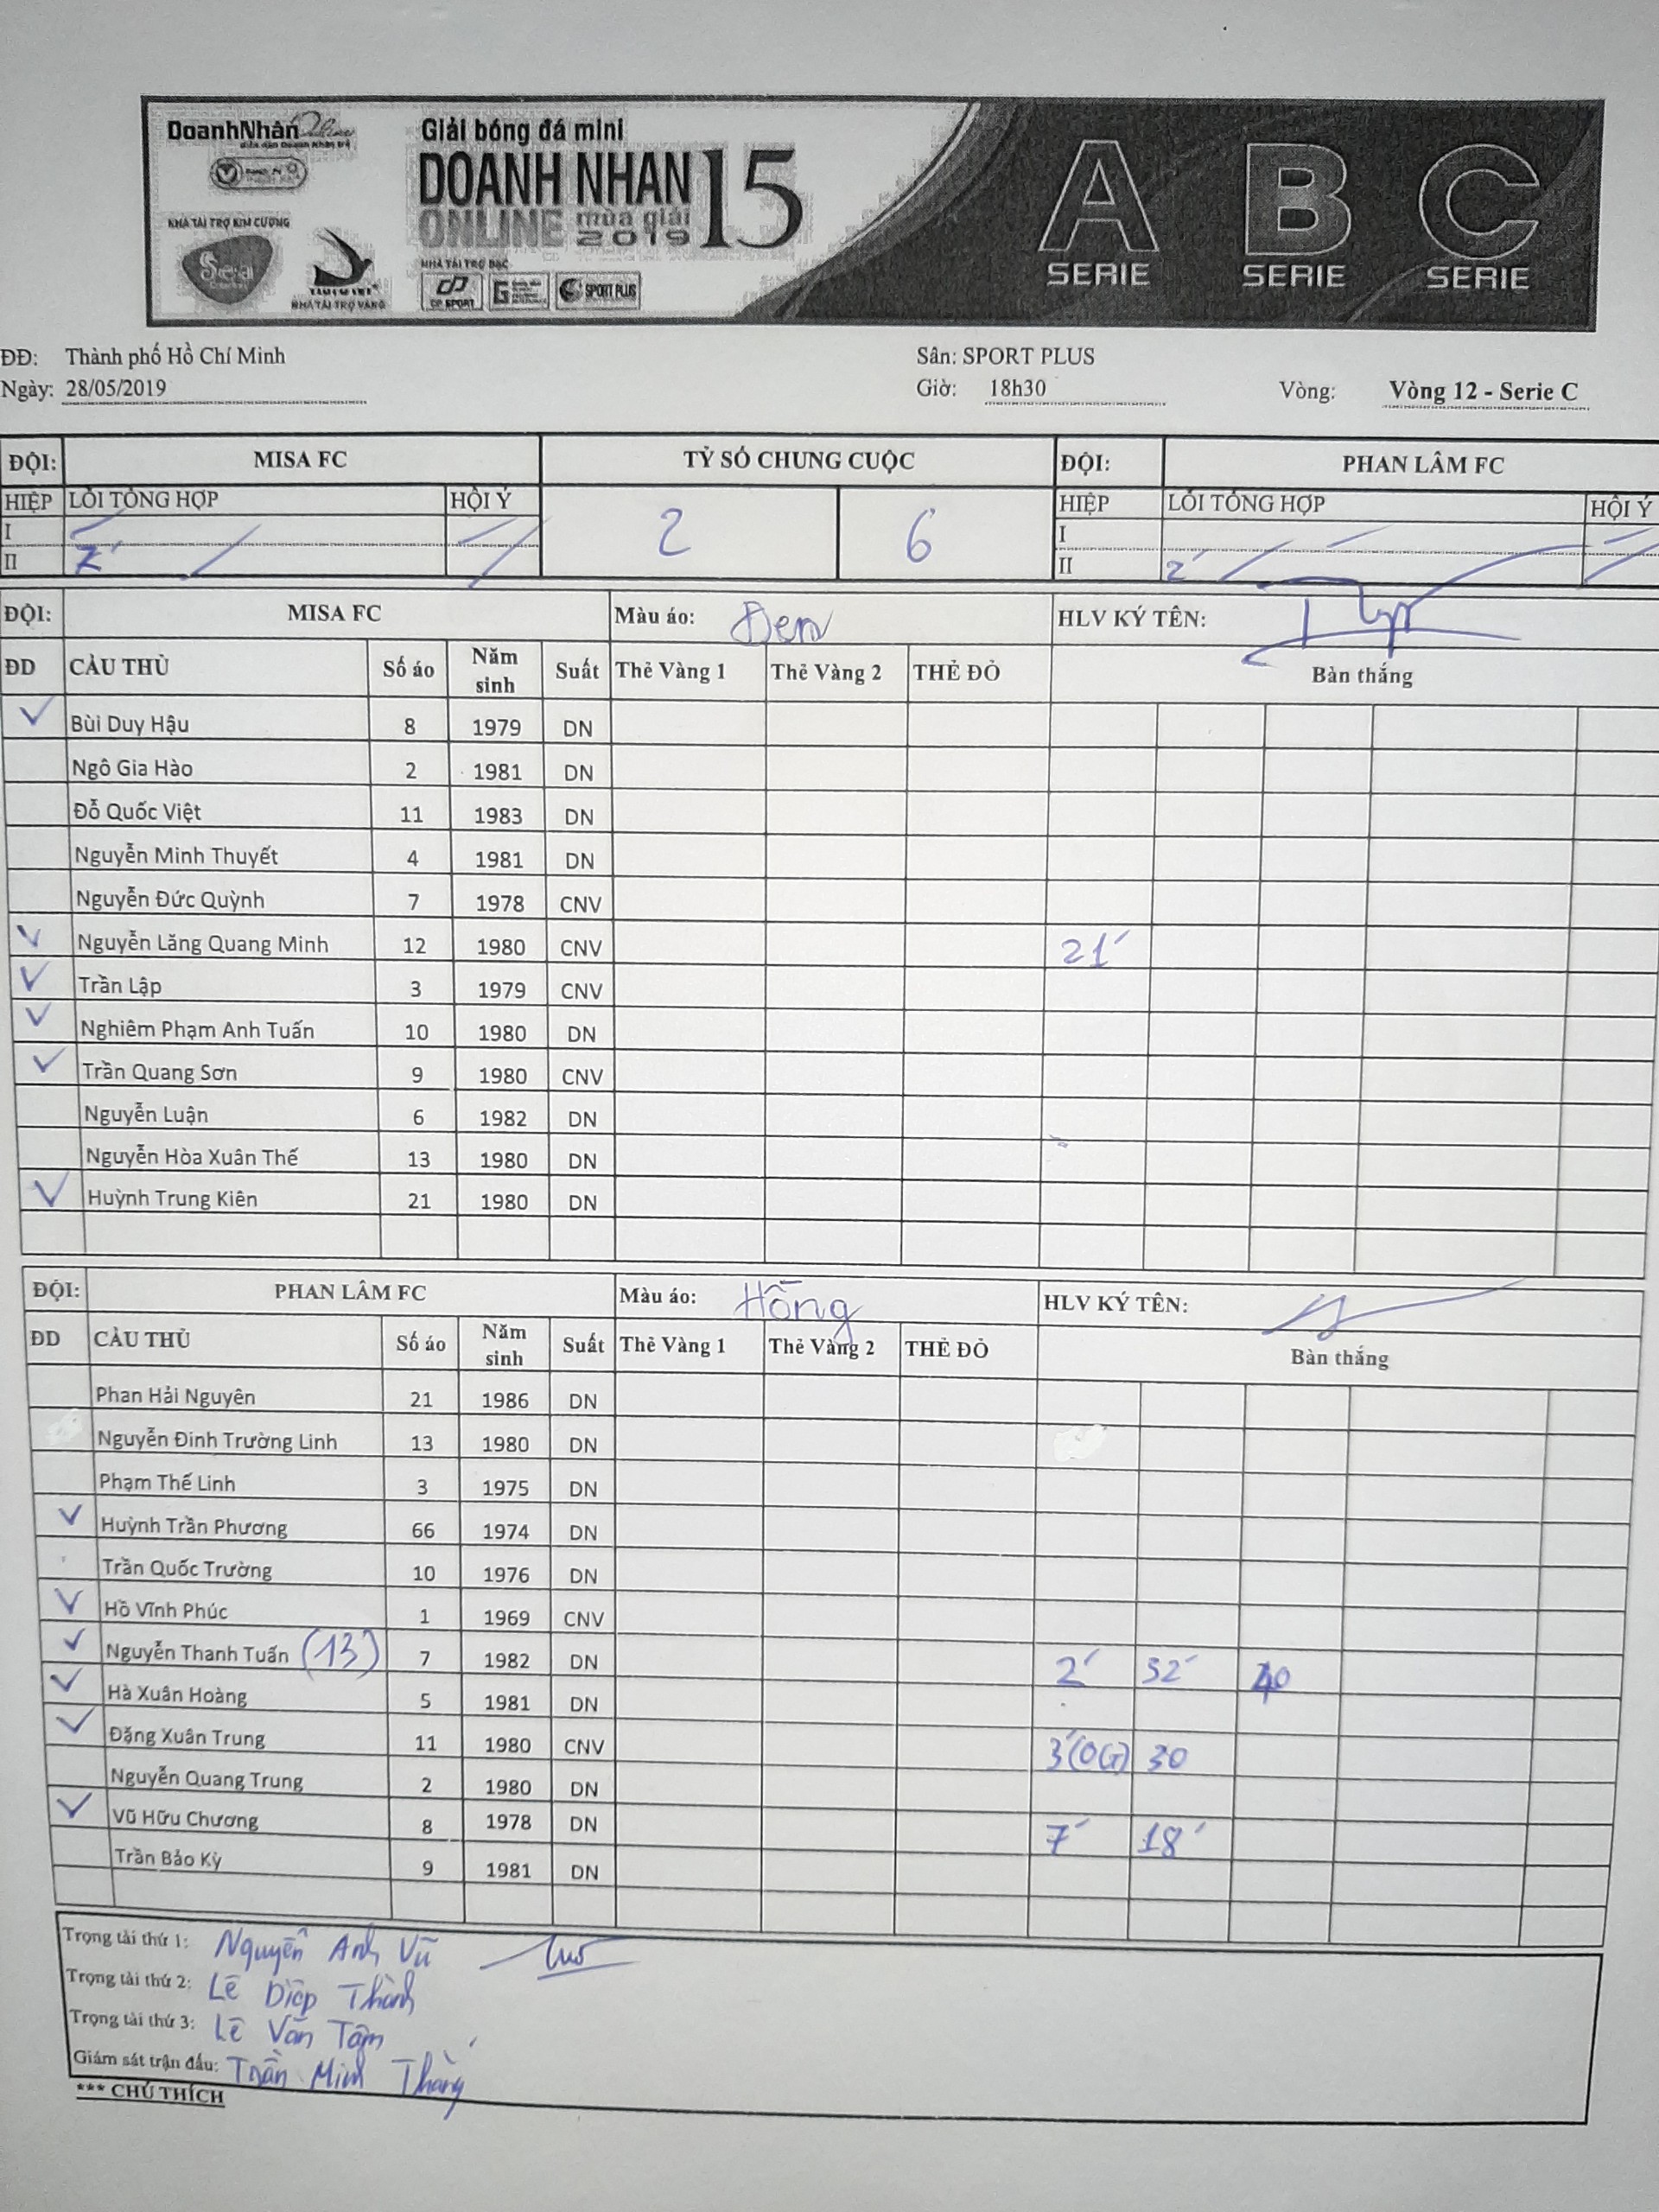 DoanhNhân Online
diễn đàn Doanh Nhân trẻ
Giải bóng đá mini
DOANH NHAN 15
ONLINE mùa giải 2019
NHÀ TÀI TRỢ KIM CƯƠNG
NHÀ TÀI TRỢ VÀNG
NHÀ TÀI TRỢ BẠC
CP SPORT
SPORT PLUS
A SERIE B SERIE C SERIE
ĐĐ: Thành phố Hồ Chí Minh Sân: SPORT PLUS
Ngày: 28/05/2019 Giờ: 18h30 Vòng: Vòng 12 - Serie C
ĐỘI: MISA FC TỶ SỐ CHUNG CUỘC ĐỘI: PHAN LÂM FC
HIỆP LỖI TỔNG HỢP HỘI Ý 2 6 HIỆP LỖI TỔNG HỢP HỘI Ý
I I
II 7' II 2'
ĐỘI: MISA FC Màu áo: Đen HLV KÝ TÊN:
ĐD CẦU THỦ Số áo Năm sinh Suất Thẻ Vàng 1 Thẻ Vàng 2 THẺ ĐỎ Bàn thắng
Bùi Duy Hậu 8 1979 DN
Ngô Gia Hào 2 1981 DN
Đỗ Quốc Việt 11 1983 DN
Nguyễn Minh Thuyết 4 1981 DN
Nguyễn Đức Quỳnh 7 1978 CNV
Nguyễn Lăng Quang Minh 12 1980 CNV 21'
Trần Lập 3 1979 CNV
Nghiêm Phạm Anh Tuấn 10 1980 DN
Trần Quang Sơn 9 1980 CNV
Nguyễn Luận 6 1982 DN
Nguyễn Hòa Xuân Thế 13 1980 DN
Huỳnh Trung Kiên 21 1980 DN
ĐỘI: PHAN LÂM FC Màu áo: Hồng HLV KÝ TÊN:
ĐD CẦU THỦ Số áo Năm sinh Suất Thẻ Vàng 1 Thẻ Vàng 2 THẺ ĐỎ Bàn thắng
Phan Hải Nguyên 21 1986 DN
Nguyễn Đinh Trường Linh 13 1980 DN
Phạm Thế Linh 3 1975 DN
Huỳnh Trần Phương 66 1974 DN
Trần Quốc Trường 10 1976 DN
Hồ Vĩnh Phúc 1 1969 CNV
Nguyễn Thanh Tuấn (13) 7 1982 DN 2' 32' 40
Hà Xuân Hoàng 5 1981 DN
Đặng Xuân Trung 11 1980 CNV 3'(OG) 30
Nguyễn Quang Trung 2 1980 DN
Vũ Hữu Chương 8 1978 DN 7' 18'
Trần Bảo Kỳ 9 1981 DN
Trọng tài thứ 1: Nguyễn Anh Vũ
Trọng tài thứ 2: Lê Diệp Thành
Trọng tài thứ 3: Lê Văn Tâm
Giám sát trận đấu: Trần Minh Thắng
*** CHÚ THÍCH